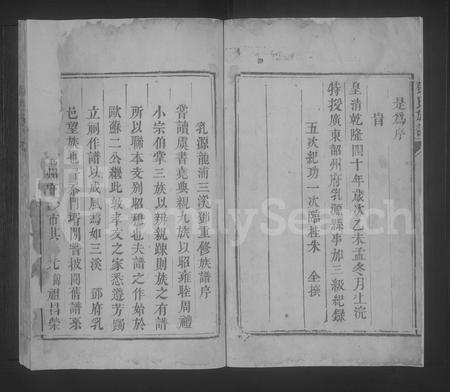 是爲序
旹
皇清乾隆四十年歲次乙未孟冬月上浣
特授廣東韶州府乳源縣事加三級紀錄
五次紀功一次臨桂朱 仝撰
乳源龍浦三溪鄧重修族譜序
嘗讀虞書堯典親九族以昭雍睦周禮
小宗伯掌三族以辨親踈則族之有譜
所以聯本支别昭穆也夫譜之作始於
歐蘇二公繼此敦孝友之家悉遵芳躅
立祠作譜以成風焉如三溪 鄧府乳
邑望族也 門 閱舊譜系
祖昌榮
FamilySearch